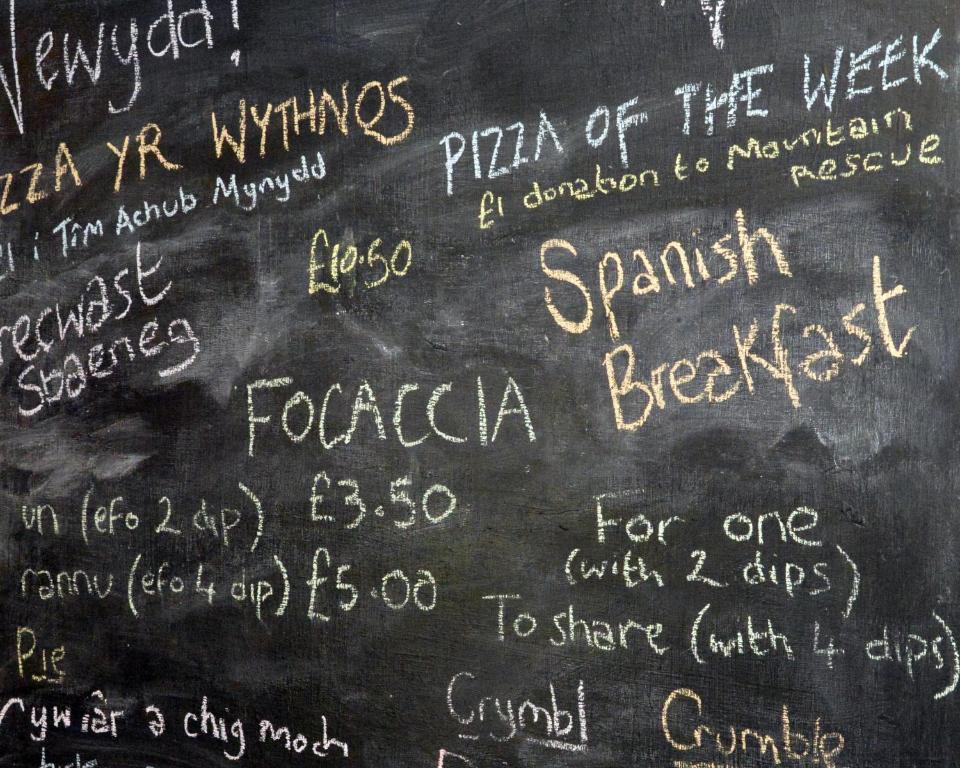 Newydd!
PIZZA YR WYTHNOS
PIZZA OF THE WEEK
i Tîm Achub Mynydd
£1 donation to Mountain
rescue
£10.50
Brecwast
Sbaeneg
Spanish
Breakfast
FOCACCIA
un (efo 2 dip) £3.50
For one
(with 2 dips)
rannu (efo 4 dip) £5.00
To share (with 4 dips)
Pie
Cyw iâr a chig moch
Crymbl
Crumble